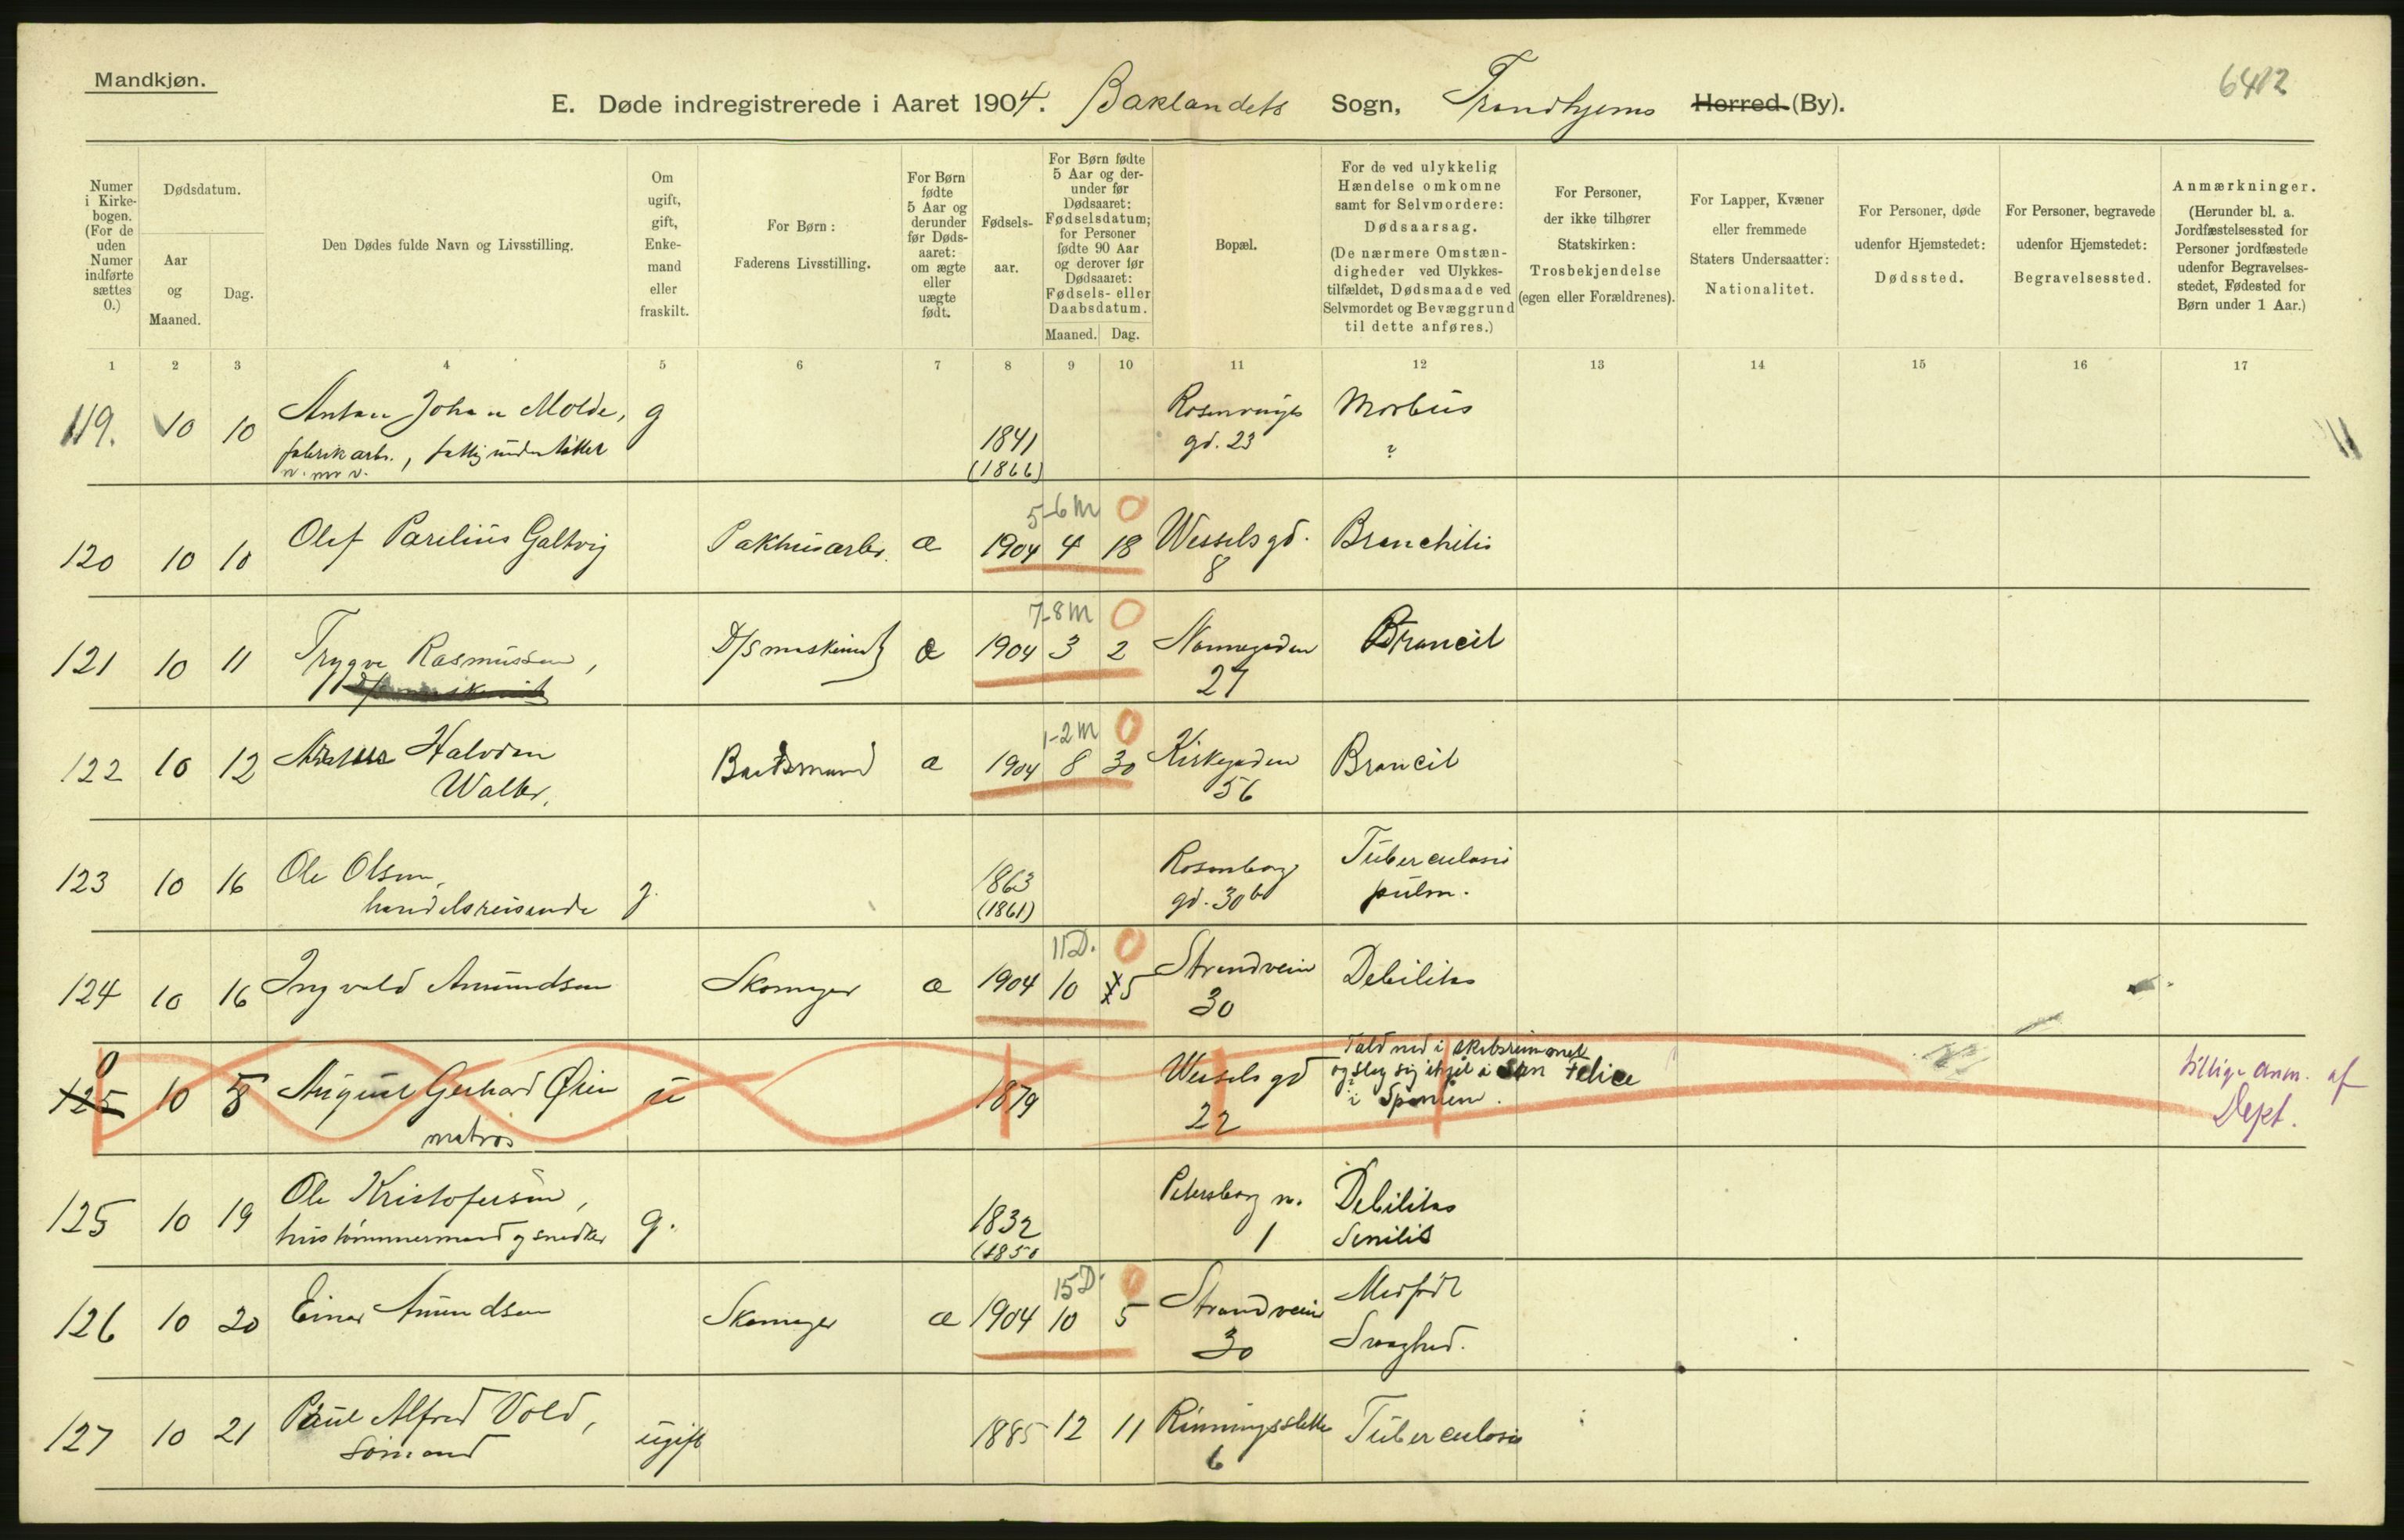 Mandkjøn.
6412
E. Døde indregistrerede i Aaret 1904. Baklandets Sogn, Trondhjems Herred (By).
Numer i Kirkebogen. (For de uden Numer indførte sættes 0.)
Dødsdatum.
Aar og Maaned.
Dag.
Den Dødes fulde Navn og Livsstilling.
Om ugift, gift, Enkemand eller fraskilt.
For Børn:
Faderens Livsstilling.
For Børn fødte 5 Aar og derunder før Dødsaaret: om ægte eller uægte født.
Fødselsaar.
For Børn fødte 5 Aar og derunder før Dødsaaret: Fødselsdatum; for Personer fødte 90 Aar og derover før Dødsaaret: Fødsels- eller Daabsdatum.
Maaned. Dag.
Bopæl.
For de ved ulykkelig Hændelse omkomne samt for Selvmordere: Dødsaarsag.
(De nærmere Omstændigheder ved Ulykkestilfældet, Dødsmaade ved Selvmordet og Bevæggrund til dette anføres.)
For Personer, der ikke tilhører Statskirken: Trosbekjendelse (egen eller Forældrenes).
For Lapper, Kvæner eller fremmede Staters Undersaatter: Nationalitet.
For Personer, døde udenfor Hjemstedet: Dødssted.
For Personer, begravede udenfor Hjemstedet: Begravelsessted.
Anmærkninger.
(Herunder bl. a. Jordfæstelsessted for Personer jordfæstede udenfor Begravelsesstedet, Fødested for Børn under 1 Aar.)
1 2 3 4 5 6 7 8 9 10 11 12 13 14 15 16 17
119. 10 10 Anton Johan Molde, g 1841 Rosenvinges Morbus
fabrikarb., fattigunderstøttet (1866) gd. 23 ?
5-6 M 0
120 10 10 Olef Parelius Galtvig Pakhusarb. æ 1904 4 18 Wesselsgd. Bronchitis
8
7-8 M 0
121 10 11 Trygve Rasmussen, D/S maskinist æ 1904 3 2 Nonnegaden Broncit
27
1-2 M 0
122 10 12 Halvdan Baadsmand æ 1904 8 30 Kirkegaden Broncit
Walter. 56
123 10 16 Ole Olsen, g. 1863 Rosenborg Tuberculosis
handelsreisende (1861) gd. 30b pulm.
11 D. 0
124 10 16 Ingvald Amundsen Skomager æ 1904 10 5 Strandvein Debilitas
30
0
125 10 8 August Gerhard Øien u 1879 Wesselsgd Fald ned i skibsrummet
og slog sig ihjel i San Felice
matros 22 i Spanien.
tillige anm. af
Dept.
125 10 19 Ole Kristofersen, g. 1832 Petersborg v. Debilitas
hustømmermand og snedker (1850 1 Senilis
15 D. 0
126 10 20 Einar Amundsen Skomager æ 1904 10 5 Strandvein Medfødt
30 Svaghed.
127 10 21 Paul Alfred Vold, ugift 1885 12 11 Rønningsslette Tuberculosis
Sømand 6